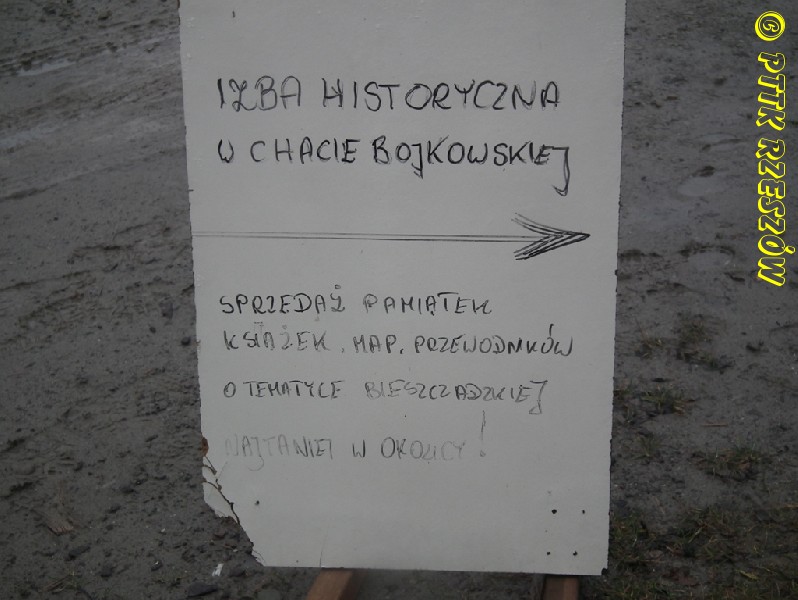 IZBA HISTORYCZNA
W CHACIE BOJKOWSKIEJ
SPRZEDAŻ PAMIĄTEK
KSIĄŻEK, MAP, PRZEWODNKÓW
O TEMATYCE BIESZCZADZKIEJ
NAJTANIEJ W OKOLICY!
© PTTK RZESZÓW